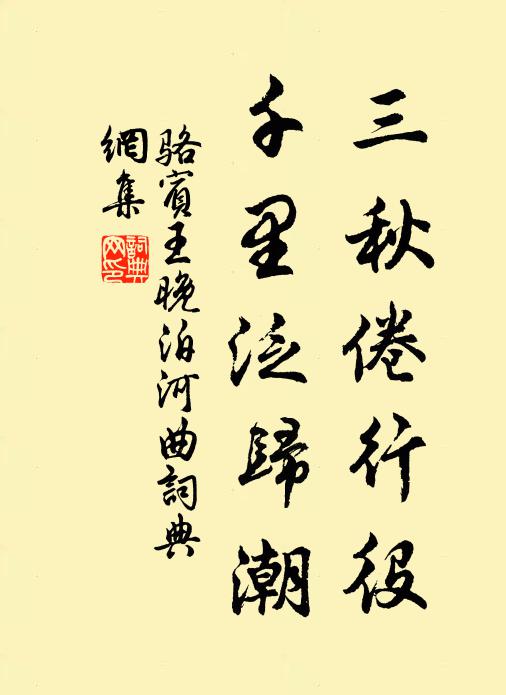 三秋倦行役
千里泛歸潮
駱賓王晚泊河曲詞典
網集
詞典
网印